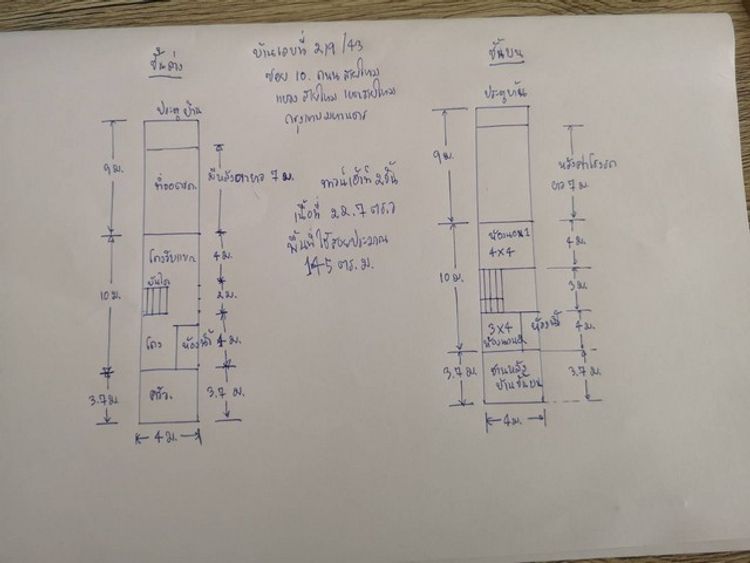 ชั้นล่าง
บ้านเลขที่ 219/43
ซอย 10. ถนน สายไหม
แขวง สายไหม เขตสายไหม
กรุงเทพมหานคร
ทาวน์เฮ้าท์ 2 ชั้น
เนื้อที่ 22.7 ตร.ว
พื้นที่ใช้สอยประมาณ
145 ตร.ม.
ประตูบ้าน
9 ม.
ที่จอดรถ
มีหลังคายาว 7 ม.
โถงรับแขก
4 ม.
บันได
2 ม.
10 ม.
โถง
ห้องน้ำ
4 ม.
3.7 ม.
ครัว
3.7 ม.
4 ม.
ชั้นบน
ประตูบ้าน
9 ม.
หลังคาโรงรถ
ยาว 7 ม.
ห้องนอน 1
4x4
4 ม.
10 ม.
3 ม.
3x4
ห้องนอน 2
ห้องน้ำ
4 ม.
3.7 ม.
ชานหลัง
บ้านชั้นบน
3.7 ม.
4 ม.